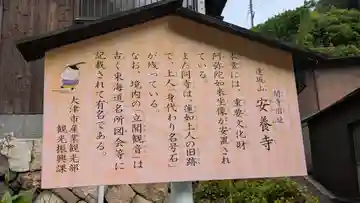 逢坂山
関寺旧址
安養寺
本堂には、重要文化財
阿弥陀如来坐像が安置され
ている。
また同寺は、蓮如上人の旧跡
で、上人「身代わり名号石」
が残っている。
なお、境内の「立聞観音」は
古く東海道名所図会等に
記載されて有名である。
大津市産業観光部
観光振興課